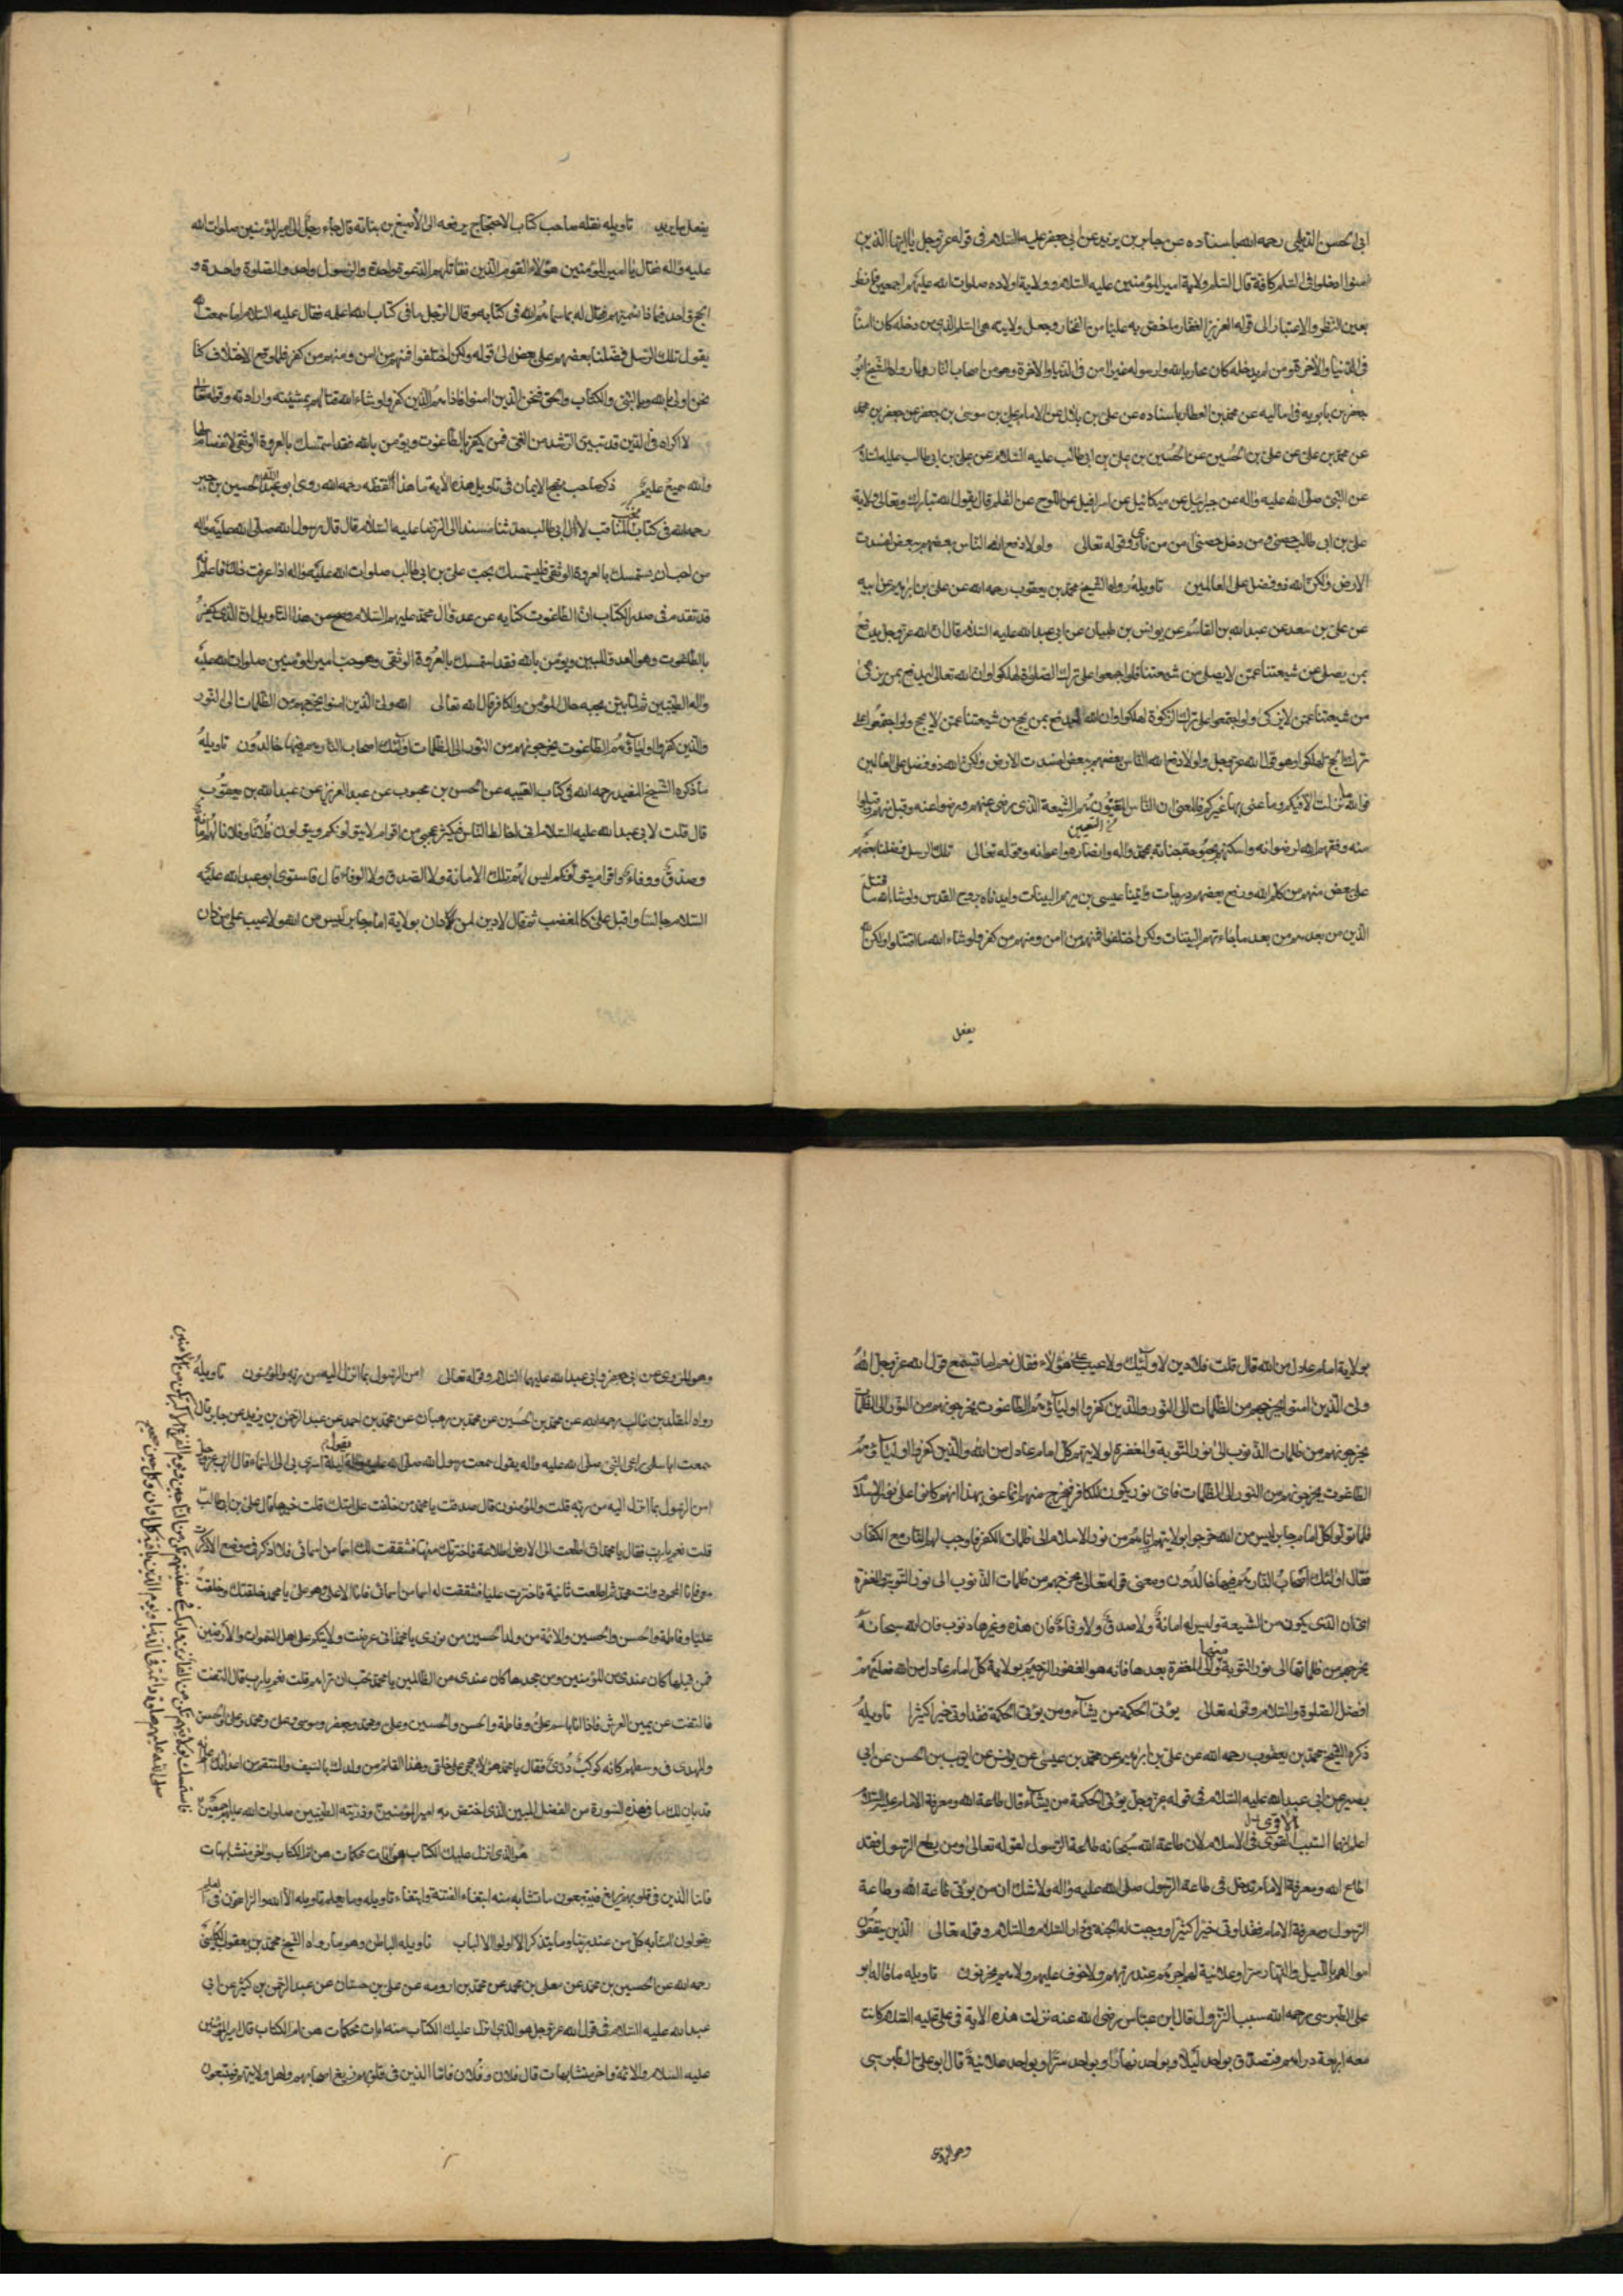 ابي الحسن الديلمي رحمه الله باسناده عن جابر بن يزيد عن ابي جعفر عليه السلام في قوله عز وجل يا ايها الذين
امنوا ادخلوا في السلم كافة قال السلم ولاية امير المؤمنين عليه السلام وولاية اولاده صلوات الله عليهم اجمعين فانظر
بعين النظر والاعتبار الى قوله العزيز الغفار ما خص به عليا من الفخار وجعل ولايته هي السلم الذي من دخله كان امنا
في الدنيا والاخرة ومن لم يدخله كان محاربا لله ولرسوله غير امن في الدنيا والاخرة وهو من اصحاب النار ولما رواه الشيخ ابو
جعفر بن بابويه في اماليه عن محمد بن العطار باسناده عن علي بن بلال عن الامام علي بن موسى بن جعفر عن جعفر بن محمد
عن محمد بن علي عن علي بن الحسين عن الحسين بن علي بن ابي طالب عليه السلام عن علي بن ابي طالب عليه السلام
عن النبي صلى الله عليه واله عن جبرئيل عن ميكائيل عن اسرافيل عن اللوح عن القلم قال يقول الله تبارك وتعالى ولاية
علي بن ابي طالب حصني ومن دخل حصني امن من ناري وقوله تعالى ولولا دفع الله الناس بعضهم ببعض لفسدت
الارض ولكن الله ذو فضل على العالمين تاويله رواه الشيخ محمد بن يعقوب رحمه الله عن علي بن ابراهيم عن ابيه
عن علي بن سعد عن عبد الله بن القاسم عن يونس بن ظبيان عن ابي عبد الله عليه السلام قال ان الله عز وجل يدفع
بمن يصلي من شيعتنا عمن لا يصلي من شيعتنا فلو اجمعوا على ترك الصلوة لهلكوا وان الله تعالى ليدفع بمن يزكي
من شيعتنا عمن لا يزكي ولو اجتمعوا على ترك الزكوة لهلكوا وان الله ليدفع بمن يحج من شيعتنا عمن لا يحج ولو اجتمعوا على
ترك الحج لهلكوا وهو قول الله عز وجل ولولا دفع الله الناس بعضهم ببعض لفسدت الارض ولكن الله ذو فضل على العالمين
فوالله ما نزلت الا فيكم وما عنى بها غيركم فالمعنى ان الناس هم الشيعة الذي رضي عنهم ورضوا عنه
منه وفقهم الله لرضوانه واسكنهم بحبوحة جنانه بمحمد واله وانصاره واعوانه وقوله تعالى تلك الرسل فضلنا بعضهم
على بعض منهم من كلم الله ورفع بعضهم درجات واتينا عيسى بن مريم البينات وايدناه بروح القدس ولو شاء الله ما اقتتل
الذين من بعدهم من بعد ما جاءتهم البينات ولكن اختلفوا فمنهم من امن ومنهم من كفر ولو شاء الله ما اقتتلوا ولكن الله
يفعل
يفعل ما يريد تاويله نقله صاحب كتاب الاحتجاج يرفعه الى الاصبغ بن نباتة قال جاء رجل الى امير المؤمنين صلوات الله
عليه واله فقال يا امير المؤمنين هؤلاء القوم الذين نقاتلهم الدعوة واحدة والرسول واحد والصلوة واحدة و
الحج واحد فما نسميهم فقال له بما سماهم الله في كتابه وقال الرجل ما في كتاب الله اعلمه فقال عليه السلام اما سمعت الله
يقول تلك الرسل فضلنا بعضهم على بعض الى قوله ولكن اختلفوا فمنهم من امن ومنهم من كفر فلما وقع الاختلاف كنا
نحن اولى بالله وبالنبي والكتاب والحق فنحن الذين امنوا هم الذين كفروا ولو شاء الله قتالهم بمشيئته وارادته وقوله تعالى
لا اكراه في الدين قد تبين الرشد من الغي فمن يكفر بالطاغوت ويؤمن بالله فقد استمسك بالعروة الوثقى لا انفصام لها
والله سميع عليم ذكر صاحب نهج الايمان في تاويل هذه الاية ما هذا لفظه رحمه الله روى ابو عبد الله الحسين بن جبير
رحمه الله في كتاب نخب المناقب لال ابي طالب حدثنا مسندا الى الرضا عليه السلام قال قال رسول الله صلى الله عليه واله
من احب ان يستمسك بالعروة الوثقى فليستمسك بحب علي بن ابي طالب صلوات الله عليه واله اذا عرفت ذلك فاعلم انه
قد تقدم في صدر الكتاب ان الطاغوت كناية عن عدو ال محمد عليهم السلام وصح من هذا التاويل ان الذي يكفر
بالطاغوت وهو العدو المبين ويؤمن بالله فقد استمسك بالعروة الوثقى وهو حب امير المؤمنين صلوات الله عليه
واله الطيبين ثم لما بين بحبه حال المؤمن والكافر قال الله تعالى الله ولي الذين امنوا يخرجهم من الظلمات الى النور
والذين كفروا اولياؤهم الطاغوت يخرجونهم من النور الى الظلمات اولئك اصحاب النار هم فيها خالدون تاويله
ما ذكره الشيخ المفيد رحمه الله في كتاب الغيبه عن الحسن بن محبوب عن عبد العزيز عن عبد الله بن يعقوب
قال قلت لابي عبد الله عليه السلام اني اخالط الناس فيكثر عجبي من اقوام لا يتولونكم ويتولون فلانا وفلانا لهم امانة
وصدق ووفاء واقوام يتولونكم ليس لهم تلك الامانة ولا الصدق ولا الوفاء قال فاستوى ابو عبد الله عليه
السلام جالسا واقبل علي كالمغضب ثم قال لا دين لمن دان بولاية امام جائر ليس من الله ولا عيب على من دان
بولاية امام عادل من الله قال قلت فلا دين لاولئك ولا عيب على هؤلاء فقال نعم اما تسمع قول الله عز وجل الله
ولي الذين امنوا يخرجهم من الظلمات الى النور والذين كفروا اولياؤهم الطاغوت يخرجونهم من النور الى الظلمات
يخرجونهم من ظلمات الذنوب الى نور التوبة والمغفرة لولايتهم كل امام عادل من الله والذين كفروا اولياؤهم
الطاغوت يخرجونهم من النور الى الظلمات فاي نور يكون للكافر فيخرج منه انما عنى بهذا انهم كانوا على نور الاسلام
فلما تولوا كل امام جائر ليس من الله خرجوا بولايتهم اياهم من نور الاسلام الى ظلمات الكفر فاوجب لهم النار مع الكفار
فقال اولئك اصحاب النار هم فيها خالدون ومعنى قوله تعالى يخرجهم من ظلمات الذنوب الى نور التوبة والمغفرة
اي ان الذي يكون من الشيعة وليس له امانة ولا صدق ولا وفاء فان هذه وغيرها ذنوب فان الله سبحانه
يخرجهم من ظلماتها الى نور التوبة منها والى المغفرة بعدها فانه هو الغفور الرحيم بولاية كل امام عادل من الله فعليهم
افضل الصلوة والسلام وقوله تعالى يؤتي الحكمة من يشاء ومن يؤتى الحكمة فقد اوتي خيرا كثيرا تاويله
ذكره الشيخ محمد بن يعقوب رحمه الله عن علي بن ابراهيم عن محمد بن عيسى عن يونس عن ايوب بن الحسن عن ابي
بصير عن ابي عبد الله عليه السلام في قوله عز وجل يؤتي الحكمة من يشاء قال طاعة الله ومعرفة الامام عليه السلام
اعلم انهما السبب الاقوى في الاسلام لان طاعة الله سبحانه طاعة الرسول لقوله تعالى ومن يطع الرسول فقد
اطاع الله ومعرفة الامام تدخل في طاعة الرسول صلى الله عليه واله ولا شك ان من يؤتى طاعة الله وطاعة
الرسول ومعرفة الامام فقد اوتي خيرا كثيرا ووجبت له الجنة دار السلام والسلام وقوله تعالى الذين ينفقون
اموالهم بالليل والنهار سرا وعلانية لهم اجرهم عند ربهم ولا خوف عليهم ولا هم يحزنون تاويله ما قاله ابو
علي الطبرسي رحمه الله سبب النزول قال ابن عباس رضي الله عنه نزلت هذه الاية في علي عليه السلام كانت
معه اربعة دراهم فتصدق بواحد ليلا وبواحد نهارا وبواحد سرا وبواحد علانية قال ابو علي الطبرسي
وهو المروي
وهو المروي عن ابي جعفر وابي عبد الله عليهما السلام وقوله تعالى امن الرسول بما انزل اليه من ربه والمؤمنون تاويله
رواه المقلد بن غالب رحمه الله عن محمد بن الحسين عن محمد بن وهبان عن محمد بن احمد عن عبد الرحمن بن يزيد عن جابر قال
سمعت ابا سلمى راعي النبي صلى الله عليه واله يقول سمعت رسول الله صلى الله عليه واله يقول ليلة اسري بي الى السماء قال الرب عز وجل
امن الرسول بما انزل اليه من ربه قلت والمؤمنون قال صدقت يا محمد من خلفت على امتك قلت خيرها قال علي بن ابي طالب
قلت نعم يا رب فقال يا محمد اني اطلعت الى الارض اطلاعة فاخترتك منها فشققت لك اسما من اسمائي فلا اذكر في موضع الا ذكرت
معي فانا المحمود وانت محمد ثم اطلعت ثانية فاخترت عليا فشققت له اسما من اسمائي فانا الاعلى وهو علي يا محمد خلقتك وخلقت
عليا وفاطمة والحسن والحسين والائمة من ولد الحسين من نوري يا محمد اني عرضت ولايتكم على اهل السموات والارضين
فمن قبلها كان عندي من المؤمنين ومن جحدها كان عندي من الظالمين يا محمد تحب ان تراهم قلت نعم يا رب قال التفت
فالتفت عن يمين العرش فاذا انا باسم علي وفاطمة والحسن والحسين وعلي ومحمد وجعفر وموسى وعلي ومحمد وعلي والحسن
والمهدي في وسطهم كانه كوكب دري فقال يا محمد هؤلاء حججي على خلقي وهذا القائم من ولدك بالسيف والمنتقم من اعدائك
قد بان لك ما في هذه السورة من الفضل المبين الذي اختص به امير المؤمنين وذريته الطيبين صلوات الله عليهم اجمعين
هو الذي انزل عليك الكتاب منه ايات محكمات هن ام الكتاب واخر متشابهات
فاما الذين في قلوبهم زيغ فيتبعون ما تشابه منه ابتغاء الفتنة وابتغاء تاويله وما يعلم تاويله الا الله والراسخون في العلم
يقولون امنا به كل من عند ربنا وما يتذكر الا اولوا الالباب تاويله الباطن وهو ما رواه الشيخ محمد بن يعقوب الكليني
رحمه الله عن الحسين بن محمد عن معلى بن محمد عن محمد بن ارومه عن علي بن حسان عن عبد الرحمن بن كثير عن ابي
عبد الله عليه السلام في قول الله عز وجل هو الذي انزل عليك الكتاب منه ايات محكمات هن ام الكتاب قال امير المؤمنين
عليه السلام والائمة واخر متشابهات قال فلان وفلان فاما الذين في قلوبهم زيغ اصحابهم واهل ولايتهم فيتبعون
فاستمسك بولايتهم تكن من الفائزين واركب في سفينتهم تكن من الناجين ويوم الفزع الاكبر تكن من الامنين
صلى الله عليهم صلوة دائمة في الدنيا ويوم الدين باقية في كل اوان وكل حين